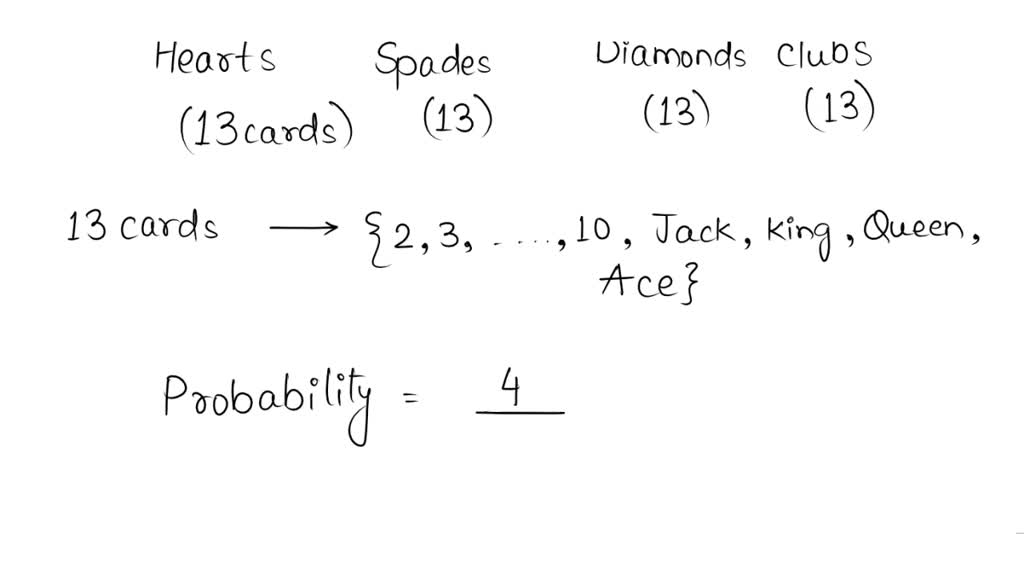 Hearts Spades Diamonds Clubs
(13 cards) (13) (13) (13)
13 cards → {2, 3, ......, 10, Jack, king, Queen,
Ace}
Probability = 4